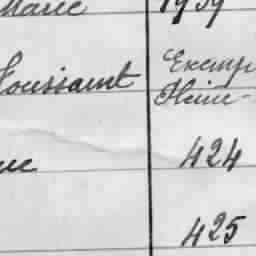 Marie 1939
Toussaint Exemp
Seine-
424
425